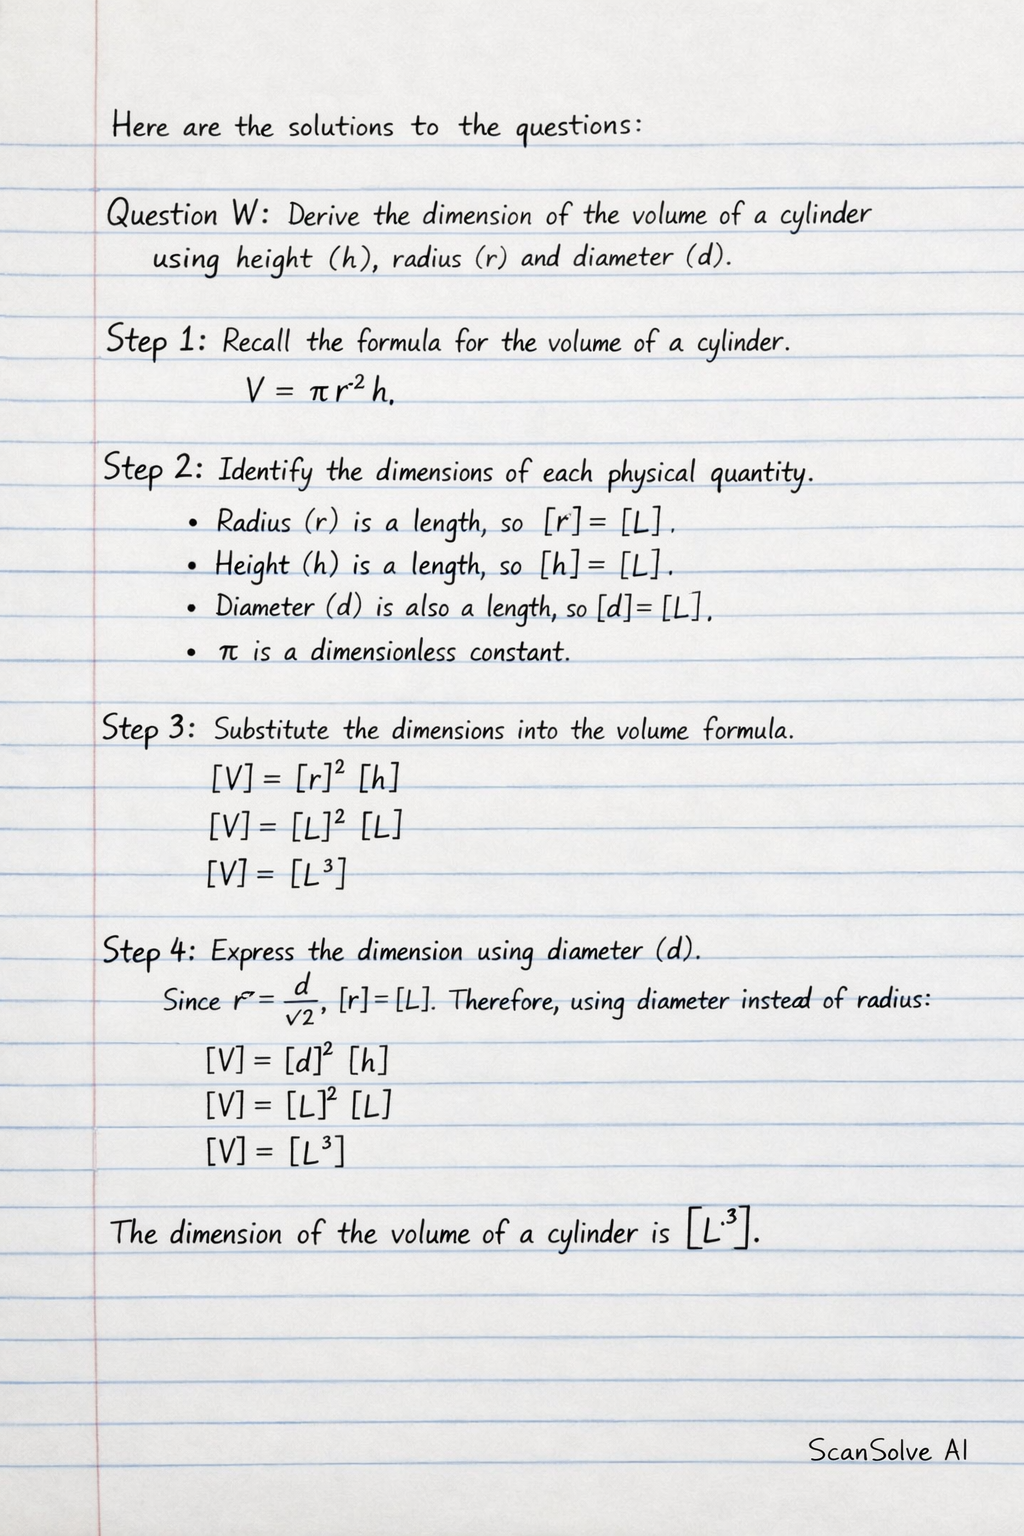 Here are the solutions to the questions:
Question W: Derive the dimension of the volume of a cylinder
using height (h), radius (r) and diameter (d).
Step 1: Recall the formula for the volume of a cylinder.
V = π r² h.
Step 2: Identify the dimensions of each physical quantity.
• Radius (r) is a length, so [r] = [L].
• Height (h) is a length, so [h] = [L].
• Diameter (d) is also a length, so [d] = [L].
• π is a dimensionless constant.
Step 3: Substitute the dimensions into the volume formula.
[V] = [r]² [h]
[V] = [L]² [L]
[V] = [L³]
Step 4: Express the dimension using diameter (d).
Since r = d/√2, [r] = [L]. Therefore, using diameter instead of radius:
[V] = [d]² [h]
[V] = [L]² [L]
[V] = [L³]
The dimension of the volume of a cylinder is [L³].
ScanSolve AI